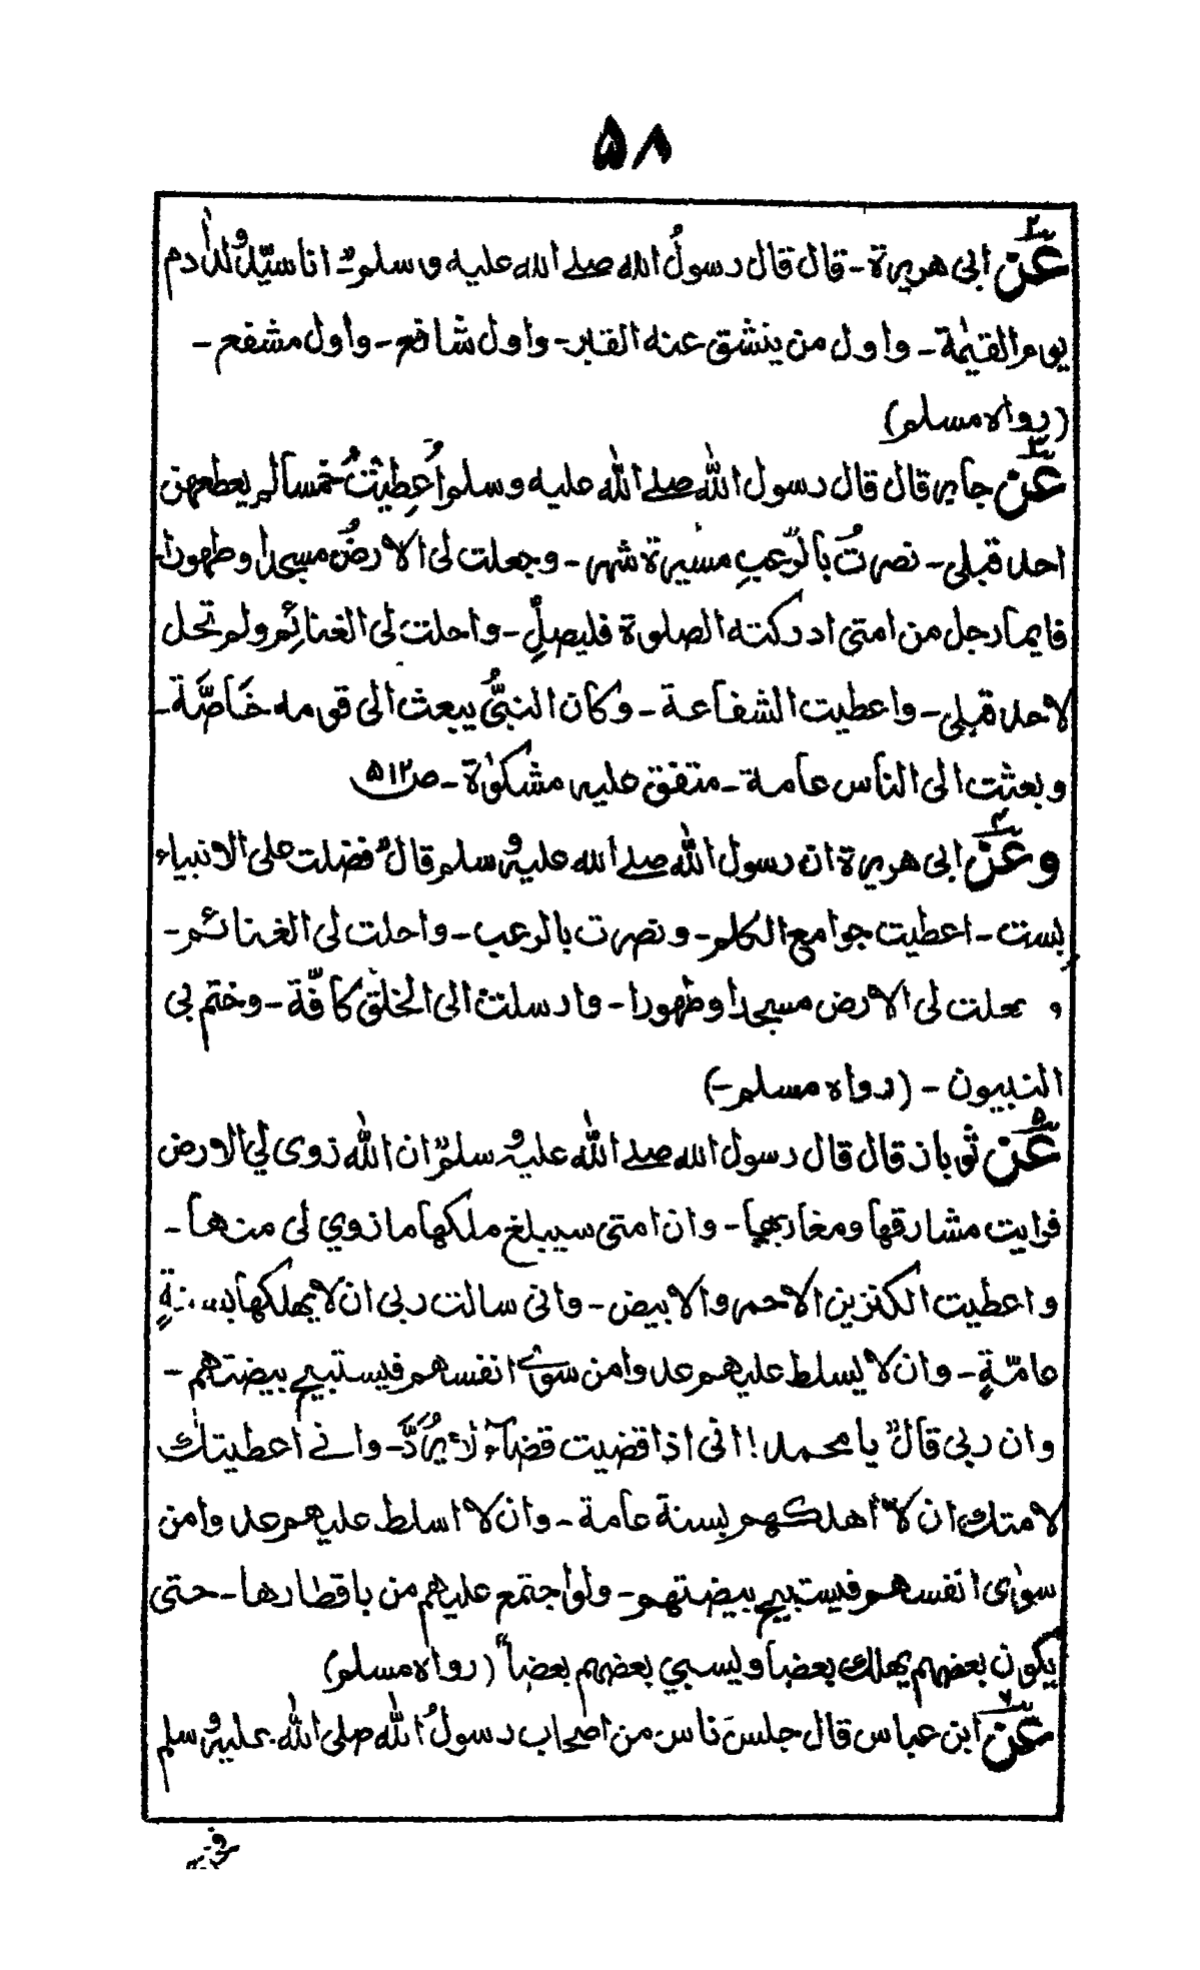 ۵۸
۲
عن ابی هريرة ـ قال قال رسولُ الله صلے الله عليه و سلم ؐ ـ انا سيّدُ ولدِ اٰدم
يوم القيٰمة ـ واول من ينشق عنه القبر ـ واول شافع ـ واول مشفع ـ
(رواه مسلم)
۳
عن جابر قال قال رسول الله صلے الله عليه وسلم اُعطِيتُ خمسا لم يعطهن
احد قبلی ـ نصرتُ بالرّعبِ مسيرة شهر ـ وجعلت لی الارضُ مسجدا وطهورا
فايما رجل من امتی ادركته الصلوة فليصلِّ ـ واحلت لی الغنائِم ولم تحل
لاحد قبلی ـ واعطيت الشفاعة ـ وكان النبیُّ يبعث الی قومه خَاصَّة ـ
وبعثت الی الناس عامة ـ متفق عليہ مشكوٰة ـ ص ۵۱۲
۴
وعن ابی هريرة ان رسول الله صلے الله عليہ وسلم قال ”فضلت علی الانبياء
بست ـ اعطيت جوامع الكلم ـ ونصرت بالرعب ـ واحلت لی الغنائم ـ
وجعلت لی الارض مسجدا وطهورا ـ وارسلت الی الخلق كافّة ـ وختم بی
النبيون ـ (رواه مسلم ـ)
۵
عن ثوبان قال قال رسول الله صلے الله عليہ وسلم ”ان الله زوى لي الارض
فرايت مشارقها ومغاربها ـ وان امتی سيبلغ ملكها ما زوي لی منها ـ
واعطيت الكنزين الاحمر والابيض ـ وانی سالت ربی ان لا يهلكها بسنةٍ
عامّةٍ ـ وان لا يسلط عليهم عدوا من سوٰی انفسهم فيستبيح بيضتهم ـ
وان ربی قال” يا محمد! انی اذا قضيت قضاءً لا يُردُّ ـ وانے اعطيتك
لامتك ان لّا اهلكهم بسنة عامة ـ وان لا اسلط عليهم عدوا من
سوٰی انفسهم فيستبيح بيضتهم ـ ولو اجتمع عليهم من باقطارها ـ حتی
يكون بعضهم يهلك بعضا ويسبي بعضهم بعضاً“ (رواه مسلم)
۶
عن ابن عباس قال جلسَ ناس من اصحاب رسولُ الله صلی الله عليہ وسلم